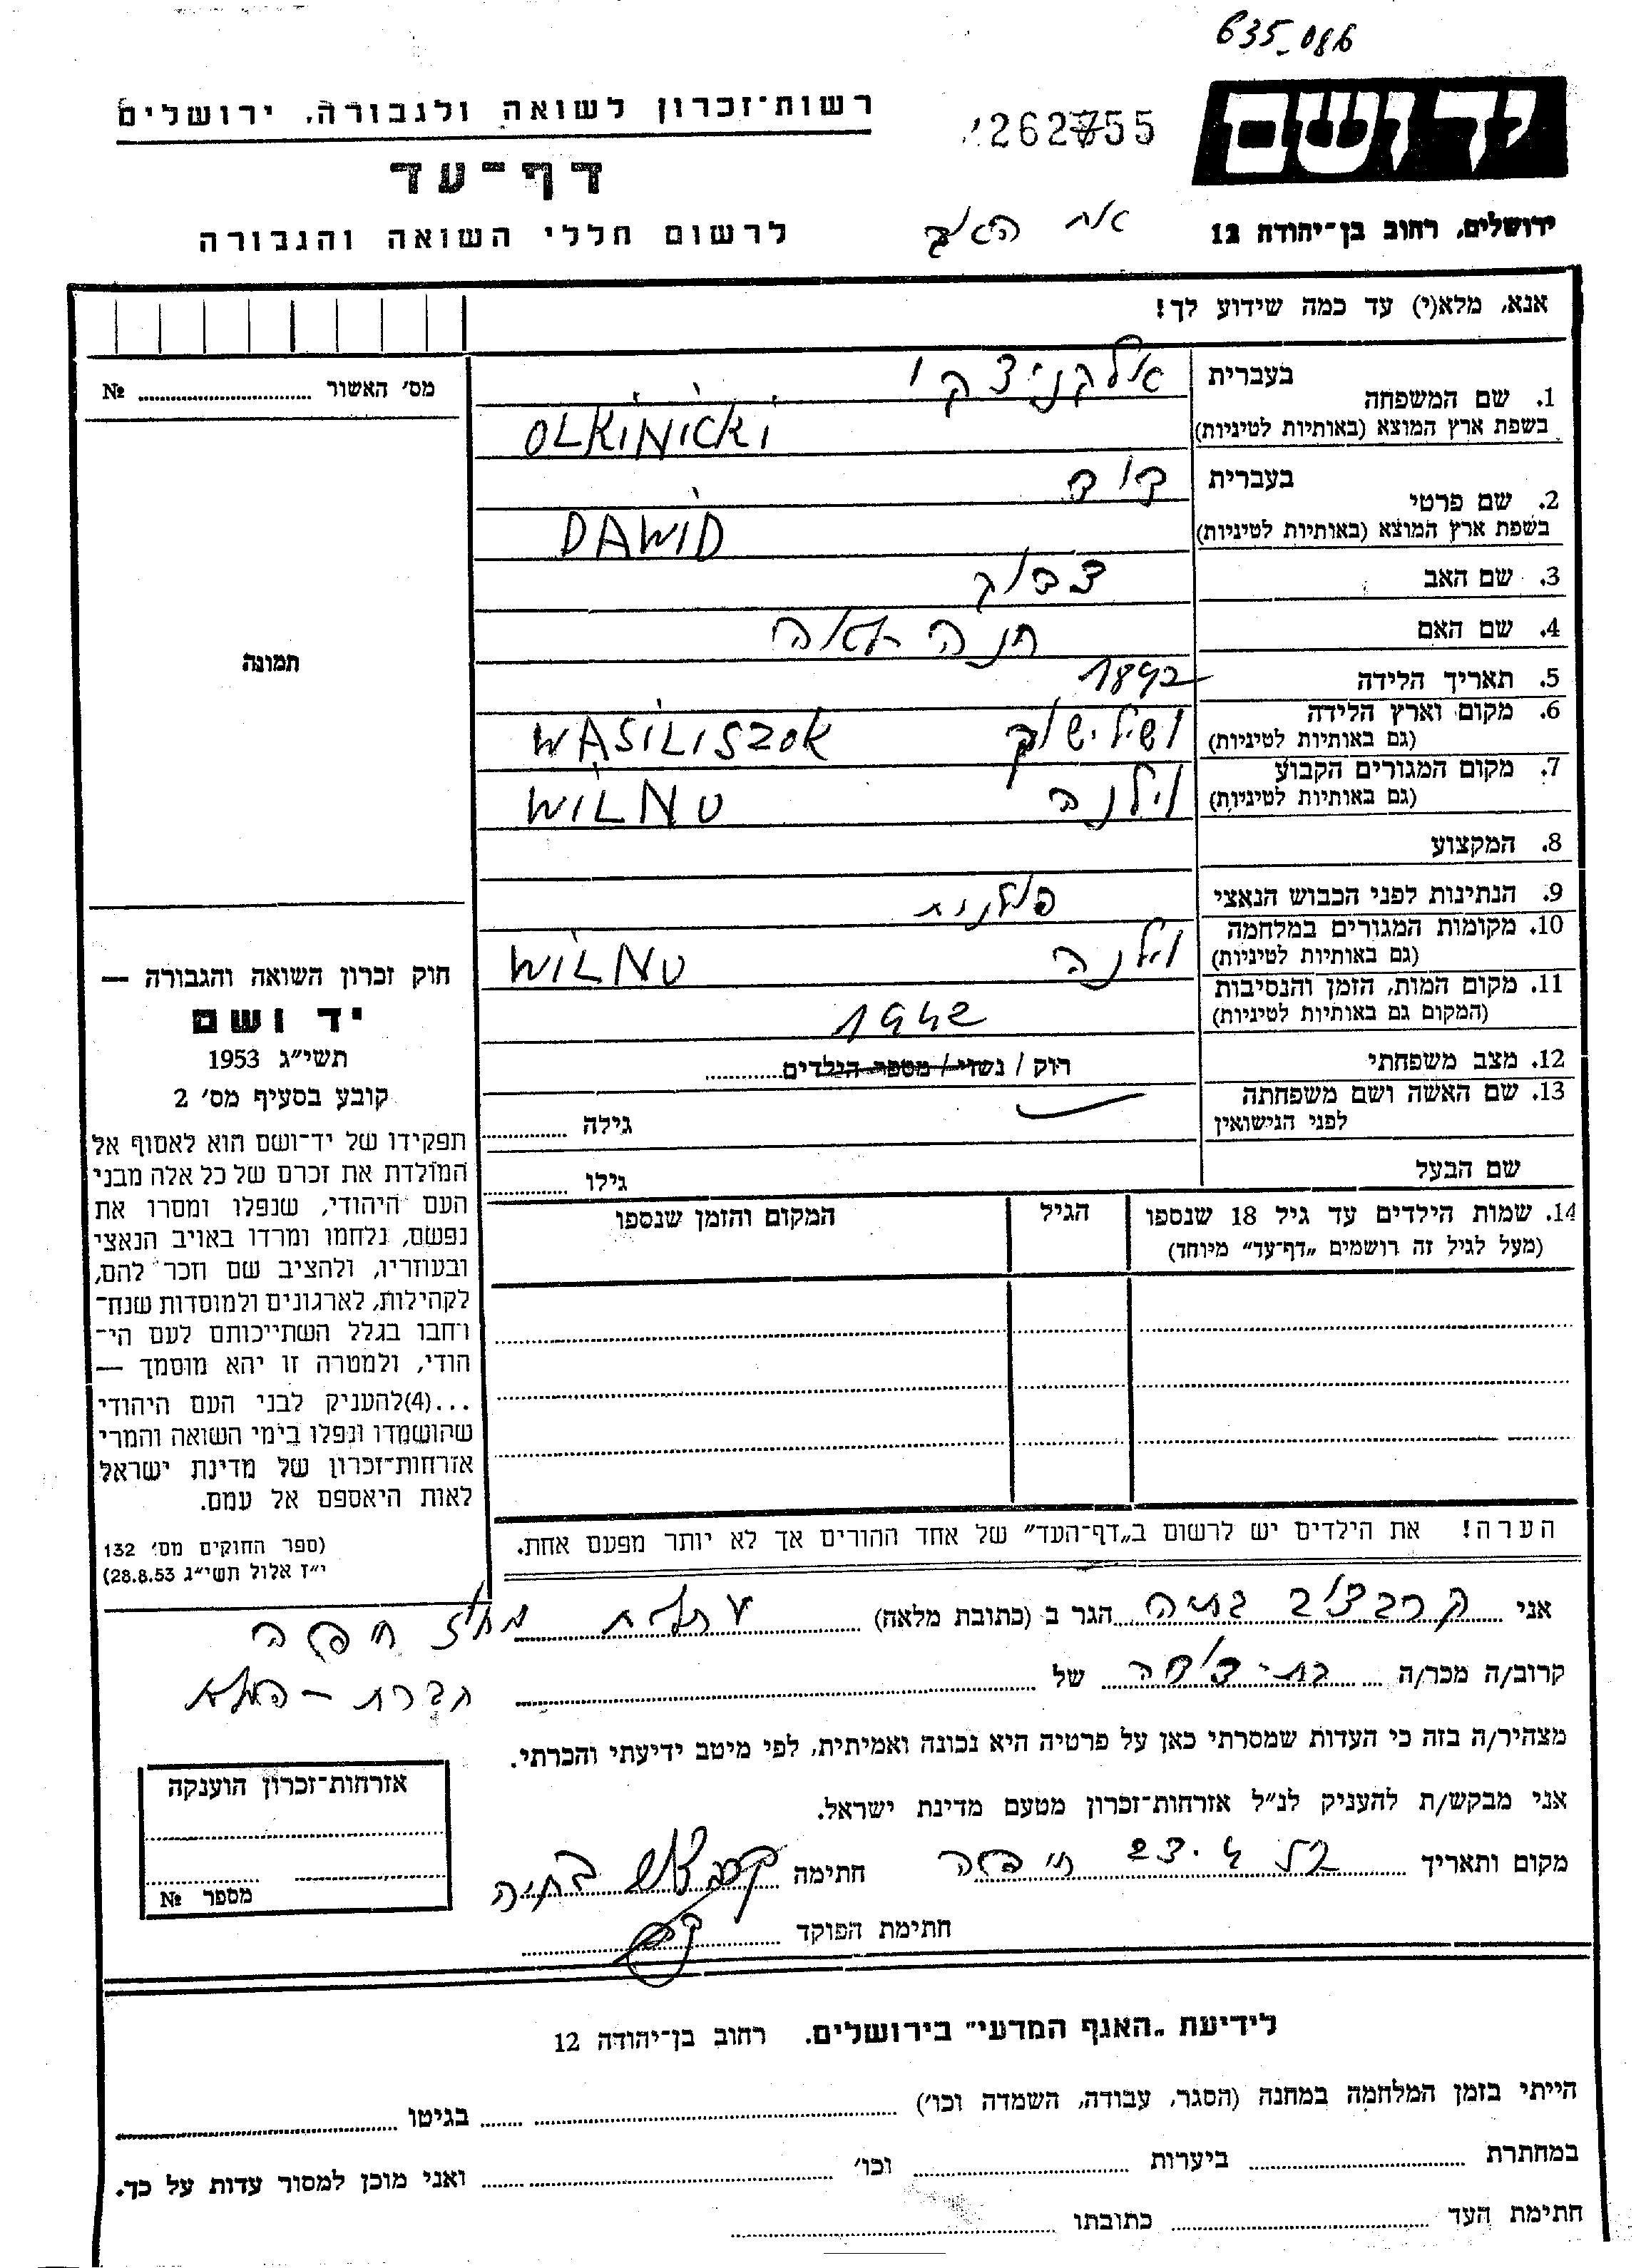 635-086
ידושם
רשות־זכרון לשואה ולגבורה, ירושלים
262755
דף־עד
ירושלים, רחוב בן־יהודה 12
לרשום חללי השואה והגבורה
אנא, מלא(י) עד כמה שידוע לך!
מס׳ האשור № ........
1. שם המשפחה
בעברית אולקניצקי
בשפת ארץ המוצא (באותיות לטיניות) OLKINICKI
2. שם פרטי
בעברית דוד
בשפת ארץ המוצא (באותיות לטיניות) DAWID
3. שם האב
4. שם האם חנה לאה
5. תאריך הלידה 1892
6. מקום וארץ הלידה
(גם באותיות לטיניות) ושילישוק WASILISZOK
7. מקום המגורים הקבוע
(גם באותיות לטיניות) וילנה WILNO
8. המקצוע
9. הנתינות לפני הכבוש הנאצי פולנית
10. מקומות המגורים במלחמה
(גם באותיות לטיניות) וילנה WILNO
11. מקום המות, הזמן והנסיבות
(המקום גם באותיות לטיניות) 1942
12. מצב משפחתי רוק / נשוי / מספר הילדים........
13. שם האשה ושם משפחתה
לפני הנישואין גילה ........
שם הבעל גילו ........
14. שמות הילדים עד גיל 18 שנספו הגיל המקום והזמן שנספו
(מעל לגיל זה רושמים „דף־עד” מיוחד)
תמונה
חוק זכרון השואה והגבורה —
יד ושם
תשי״ג 1953
קובע בסעיף מס׳ 2
תפקידו של יד־ושם הוא לאסוף אל
המולדת את זכרם של כל אלה מבני
העם היהודי, שנפלו ומסרו את
נפשם, נלחמו ומרדו באויב הנאצי
ובעוזריו, ולהציב שם וזכר להם,
לקהילות, לארגונים ולמוסדות שנח־
רחבו בגלל השתייכותם לעם הי־
הודי, ולמטרה זו יהא מוסמך —
...(4)להעניק לבני העם היהודי
שהושמדו ונפלו בימי השואה והמרי
אזרחות־זכרון של מדינת ישראל
לאות היאספם אל עמם.
(ספר החוקים מס׳ 132
י״ז אלול תשי״ג 28.8.53)
הערה! את הילדים יש לרשום ב„דף־העד” של אחד ההורים אך לא יותר מפעם אחת.
אני ........ הגר ב (כתובת מלאה) עתלית
חיפה
קרוב/ה מכר/ה בת־דודה של ........
מצהיר/ה בזה כי העדות שמסרתי כאן על פרטיה היא נכונה ואמיתית, לפי מיטב ידיעתי והכרתי.
אני מבקש/ת להעניק לנ״ל אזרחות־זכרון מטעם מדינת ישראל.
מקום ותאריך חיפה חתימה
חתימת הפוקד
אזרחות־זכרון הוענקה
מספר №
לידיעת „האגף המדעי” בירושלים. רחוב בן־יהודה 12
הייתי בזמן המלחמה במחנה (הסגר, עבודה, השמדה וכו׳) ........ בגיטו ........
במחתרת ........ ביערות ........ וכו׳ ........ ואני מוכן למסור עדות על כך.
חתימת העד ........ כתובתו ........